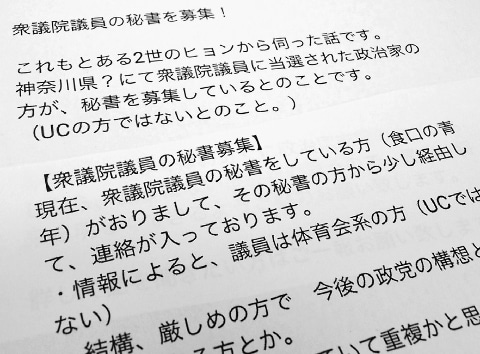 衆議院議員の秘書を募集！
これもとある2世のヒョンから伺った話です。
神奈川県？にて衆議院議員に当選された政治家の
方が、秘書を募集しているとのことです。
（UCの方ではないとのこと。）
【衆議院議員の秘書募集】
現在、衆議院議員の秘書をしている方（食口の青
年）がおりまして、その秘書の方から少し経由し
て、連絡が入っております。
・情報によると、議員は体育会系の方（UCでは
ない）
結構、厳しめの方で　今後の政党の構想と
る方とか。
いて重複かと思